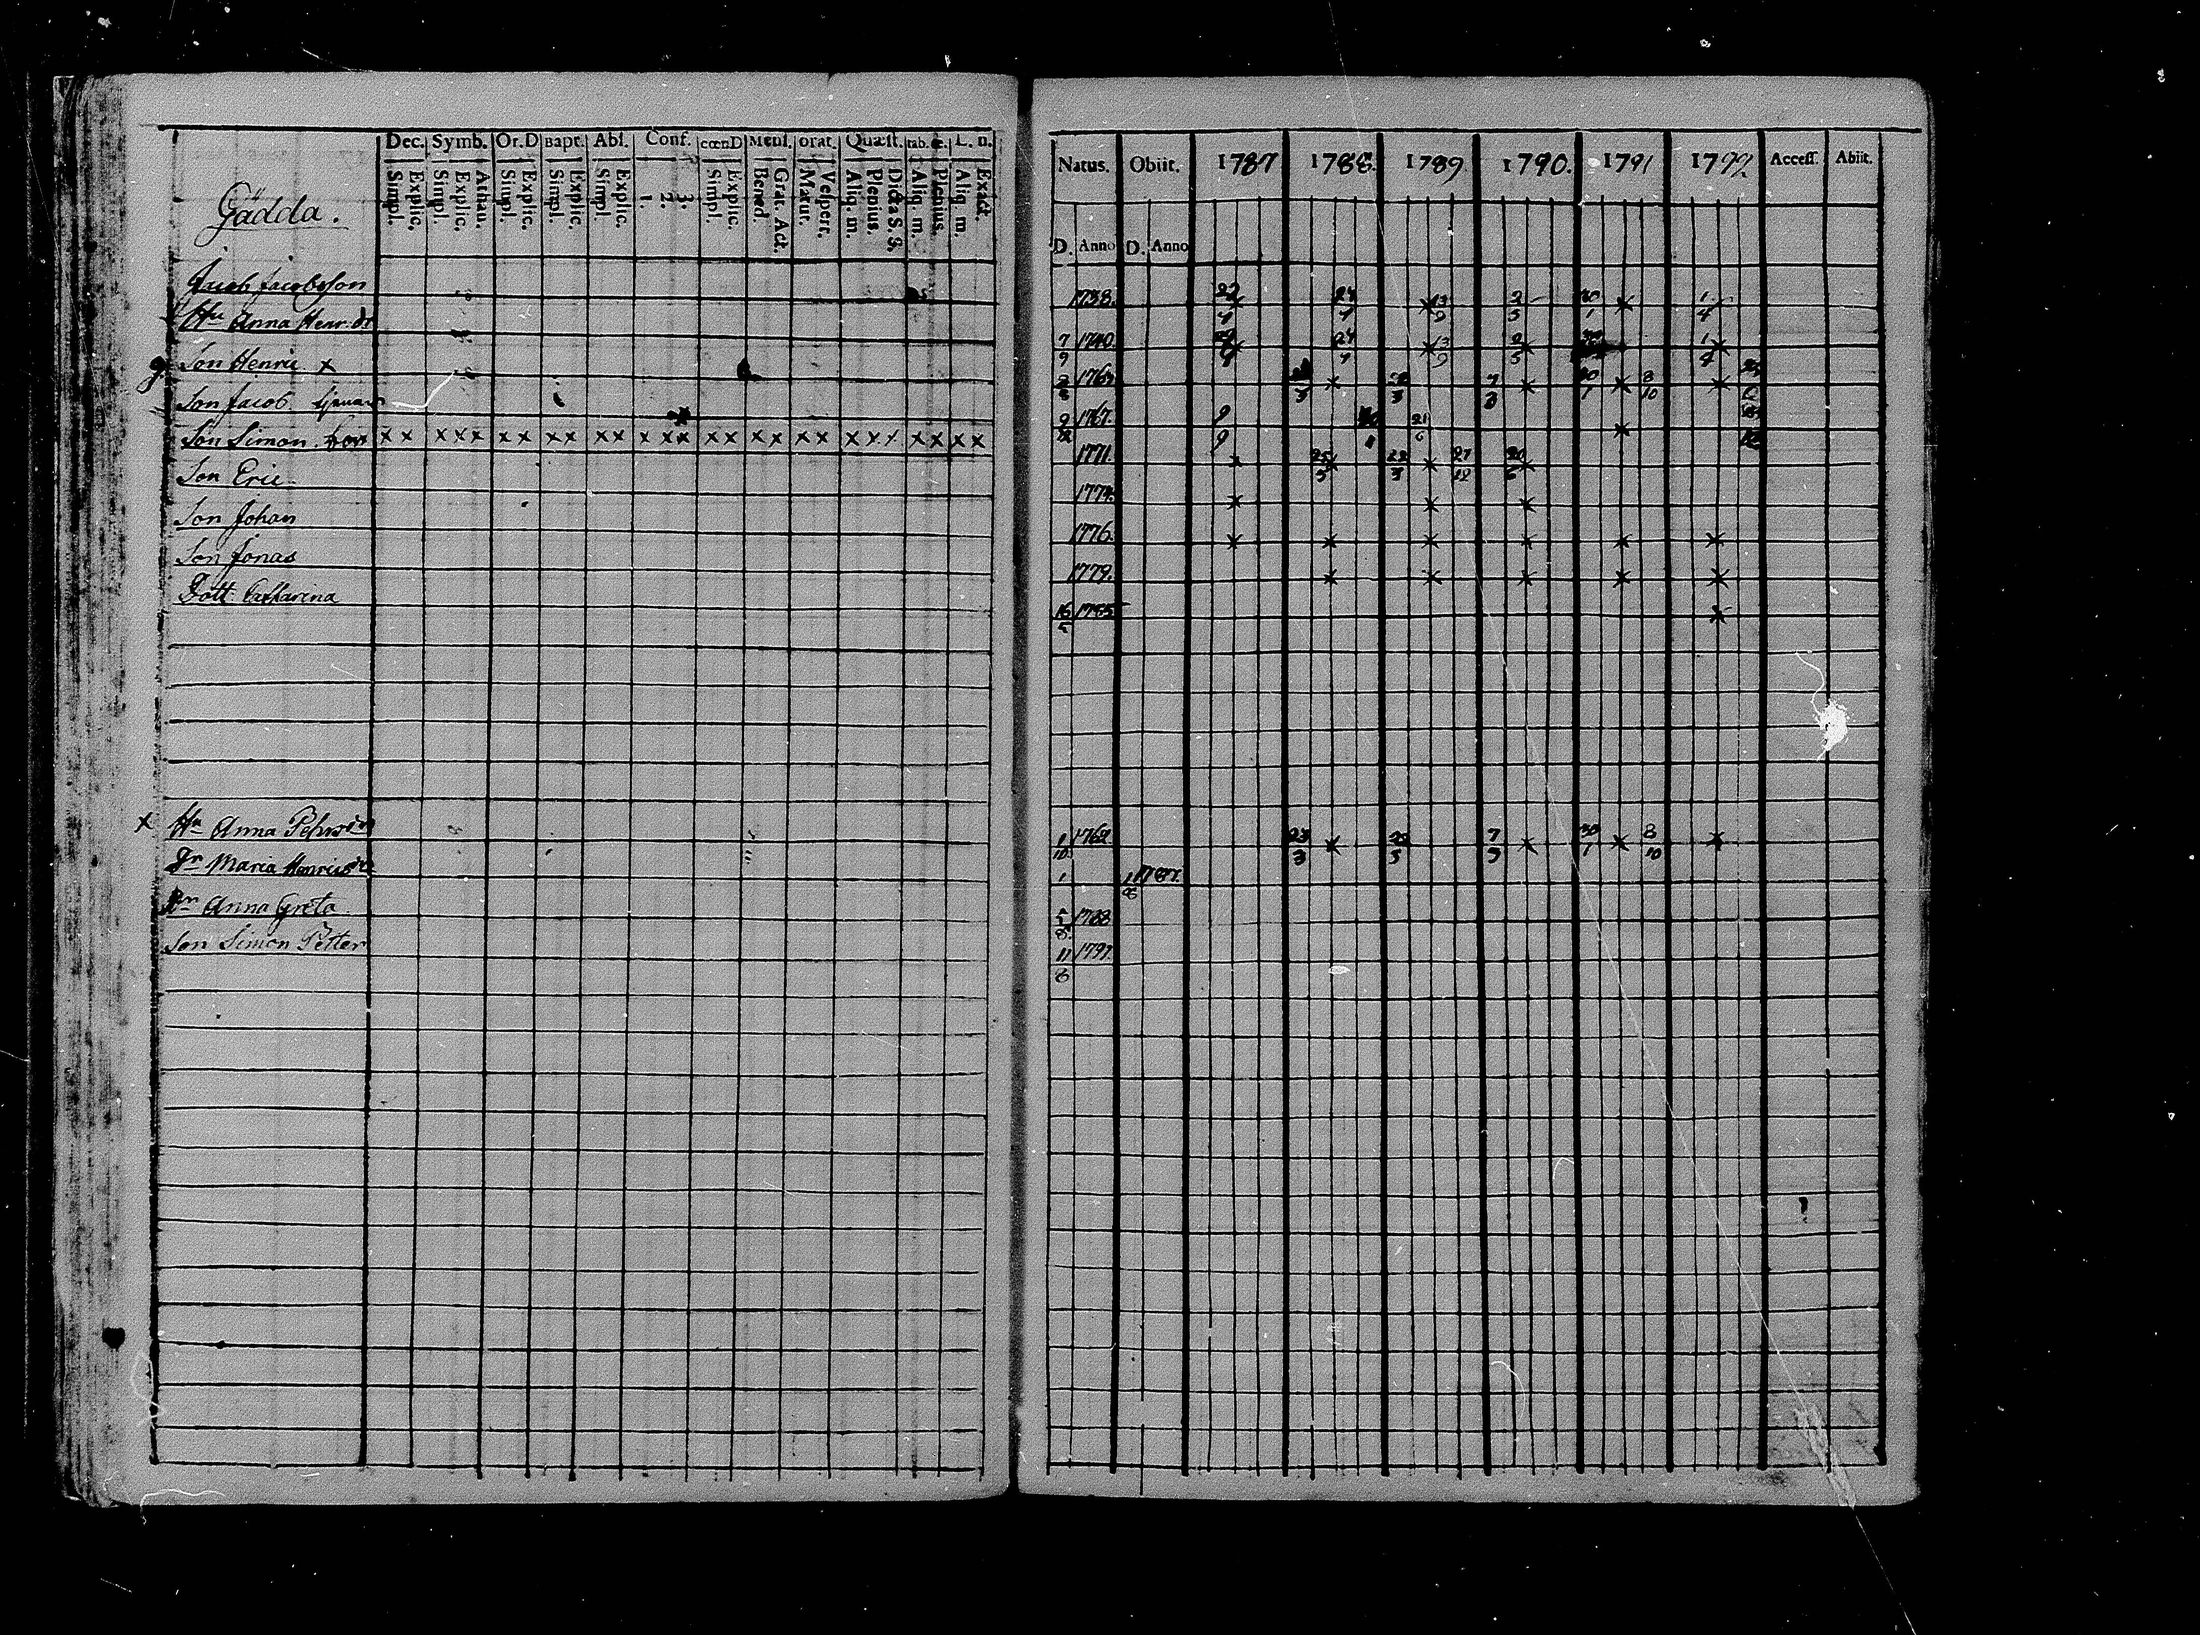 Dec. Symb. Or.D Bapt. Abs. Conf. cœnD Mens. orat. Quæst. tab.œ. L. n.
Simpl. Explic. Simpl. Explic. Athan. Simpl. Explic. Simpl. Explic. Simpl. Explic. 1. 2. 3. Simpl. Explic. Bened. Grat. Act. Matut. Vespert. Aliq. m. Plenius. Dicta S. S. Aliq. m. Plenius. Aliq. m. Exact.
Gädda.
Jacob Jacobsson
Hu Anna Henr.dr
Son Henric x
Son Jacob
Son Simon x x x x x x x x x x x x x x x x x x x x x x x x x x x
Son Eric
Son Johan
Son Jonas
Dott Catharina
x Hu Anna Pehrsdr
Dr Maria Henricsdr
Dr Anna Greta
Son Simon Petter
Natus. Obiit. 1787 1788. 1789. 1790. 1791 1792 Access. Abiit.
D. Anno D. Anno
1738. 24 x 13 2 x 1
4 9 5 1 4
7 1740. x 24 x 13 2 x 1 x
9 4 9 5 4
1767. x 7 x x 8 x
3 3 1 10
1767. 9 21 x
9 6
1771. x 25 x 22 x 27 20 x
5 3 12 5
1774. x x x
1776. x x x x x x
1779. x x x x x
16 1785 x
5
1 1762. 23 x 22 7 x 30 x 8 x
10 3 3 3 1 10
1 1 1787.
8
5 1788
8.
11 1791.
6